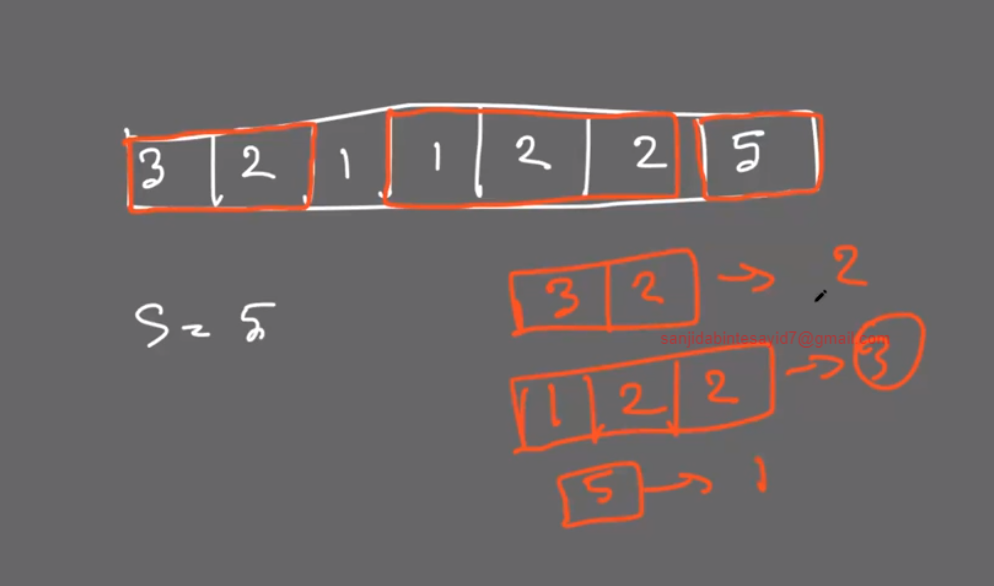 3 2 1 1 2 2 5
3 2 → 2
S = 5
sanjidabintesayid7@gmail.com
1 2 2 → 3
5 → 1